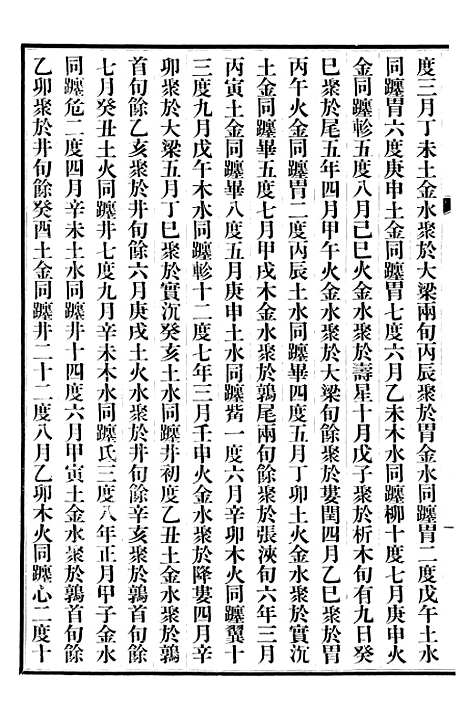 度三月丁未土金水聚於大梁兩旬丙辰聚於胃金水同躔胃二度戊午土水
同躔胃六度庚申土金同躔胃七度六月乙未木水同躔柳十度七月庚申火
金同躔軫五度八月己巳火金水聚於壽星十月戊子聚於析木旬有九日癸
巳聚於尾五年四月甲午火金水聚於大梁旬餘聚於婁閏四月乙巳聚於胃
丙午火金水同躔胃二度丙辰土水同躔畢四度五月丁卯土火金水聚於實沉
土金水同躔畢五度七月甲戌木金水聚於鶉尾兩旬餘聚於張浹旬六年三月
丙寅土金同躔畢八度五月庚申土水同躔觜一度六月辛卯木火同躔翼十
三度九月戊午木水同躔軫十二度七年三月壬申火金水聚於降婁四月辛
卯聚於大梁五月丁巳聚於實沉癸亥土水同躔井初度乙丑土金水聚於鶉
首旬餘乙亥聚於井旬餘六月庚戌土火水聚於井旬餘辛亥聚於鶉首旬餘
七月癸丑土火同躔井七度九月辛未木水同躔氐三度八年正月甲子金水
同躔危二度四月辛未土水同躔井十四度六月甲寅土金水聚於鶉首旬餘
乙卯聚於井旬餘癸酉土金同躔井二十二度八月乙卯木火同躔心二度十